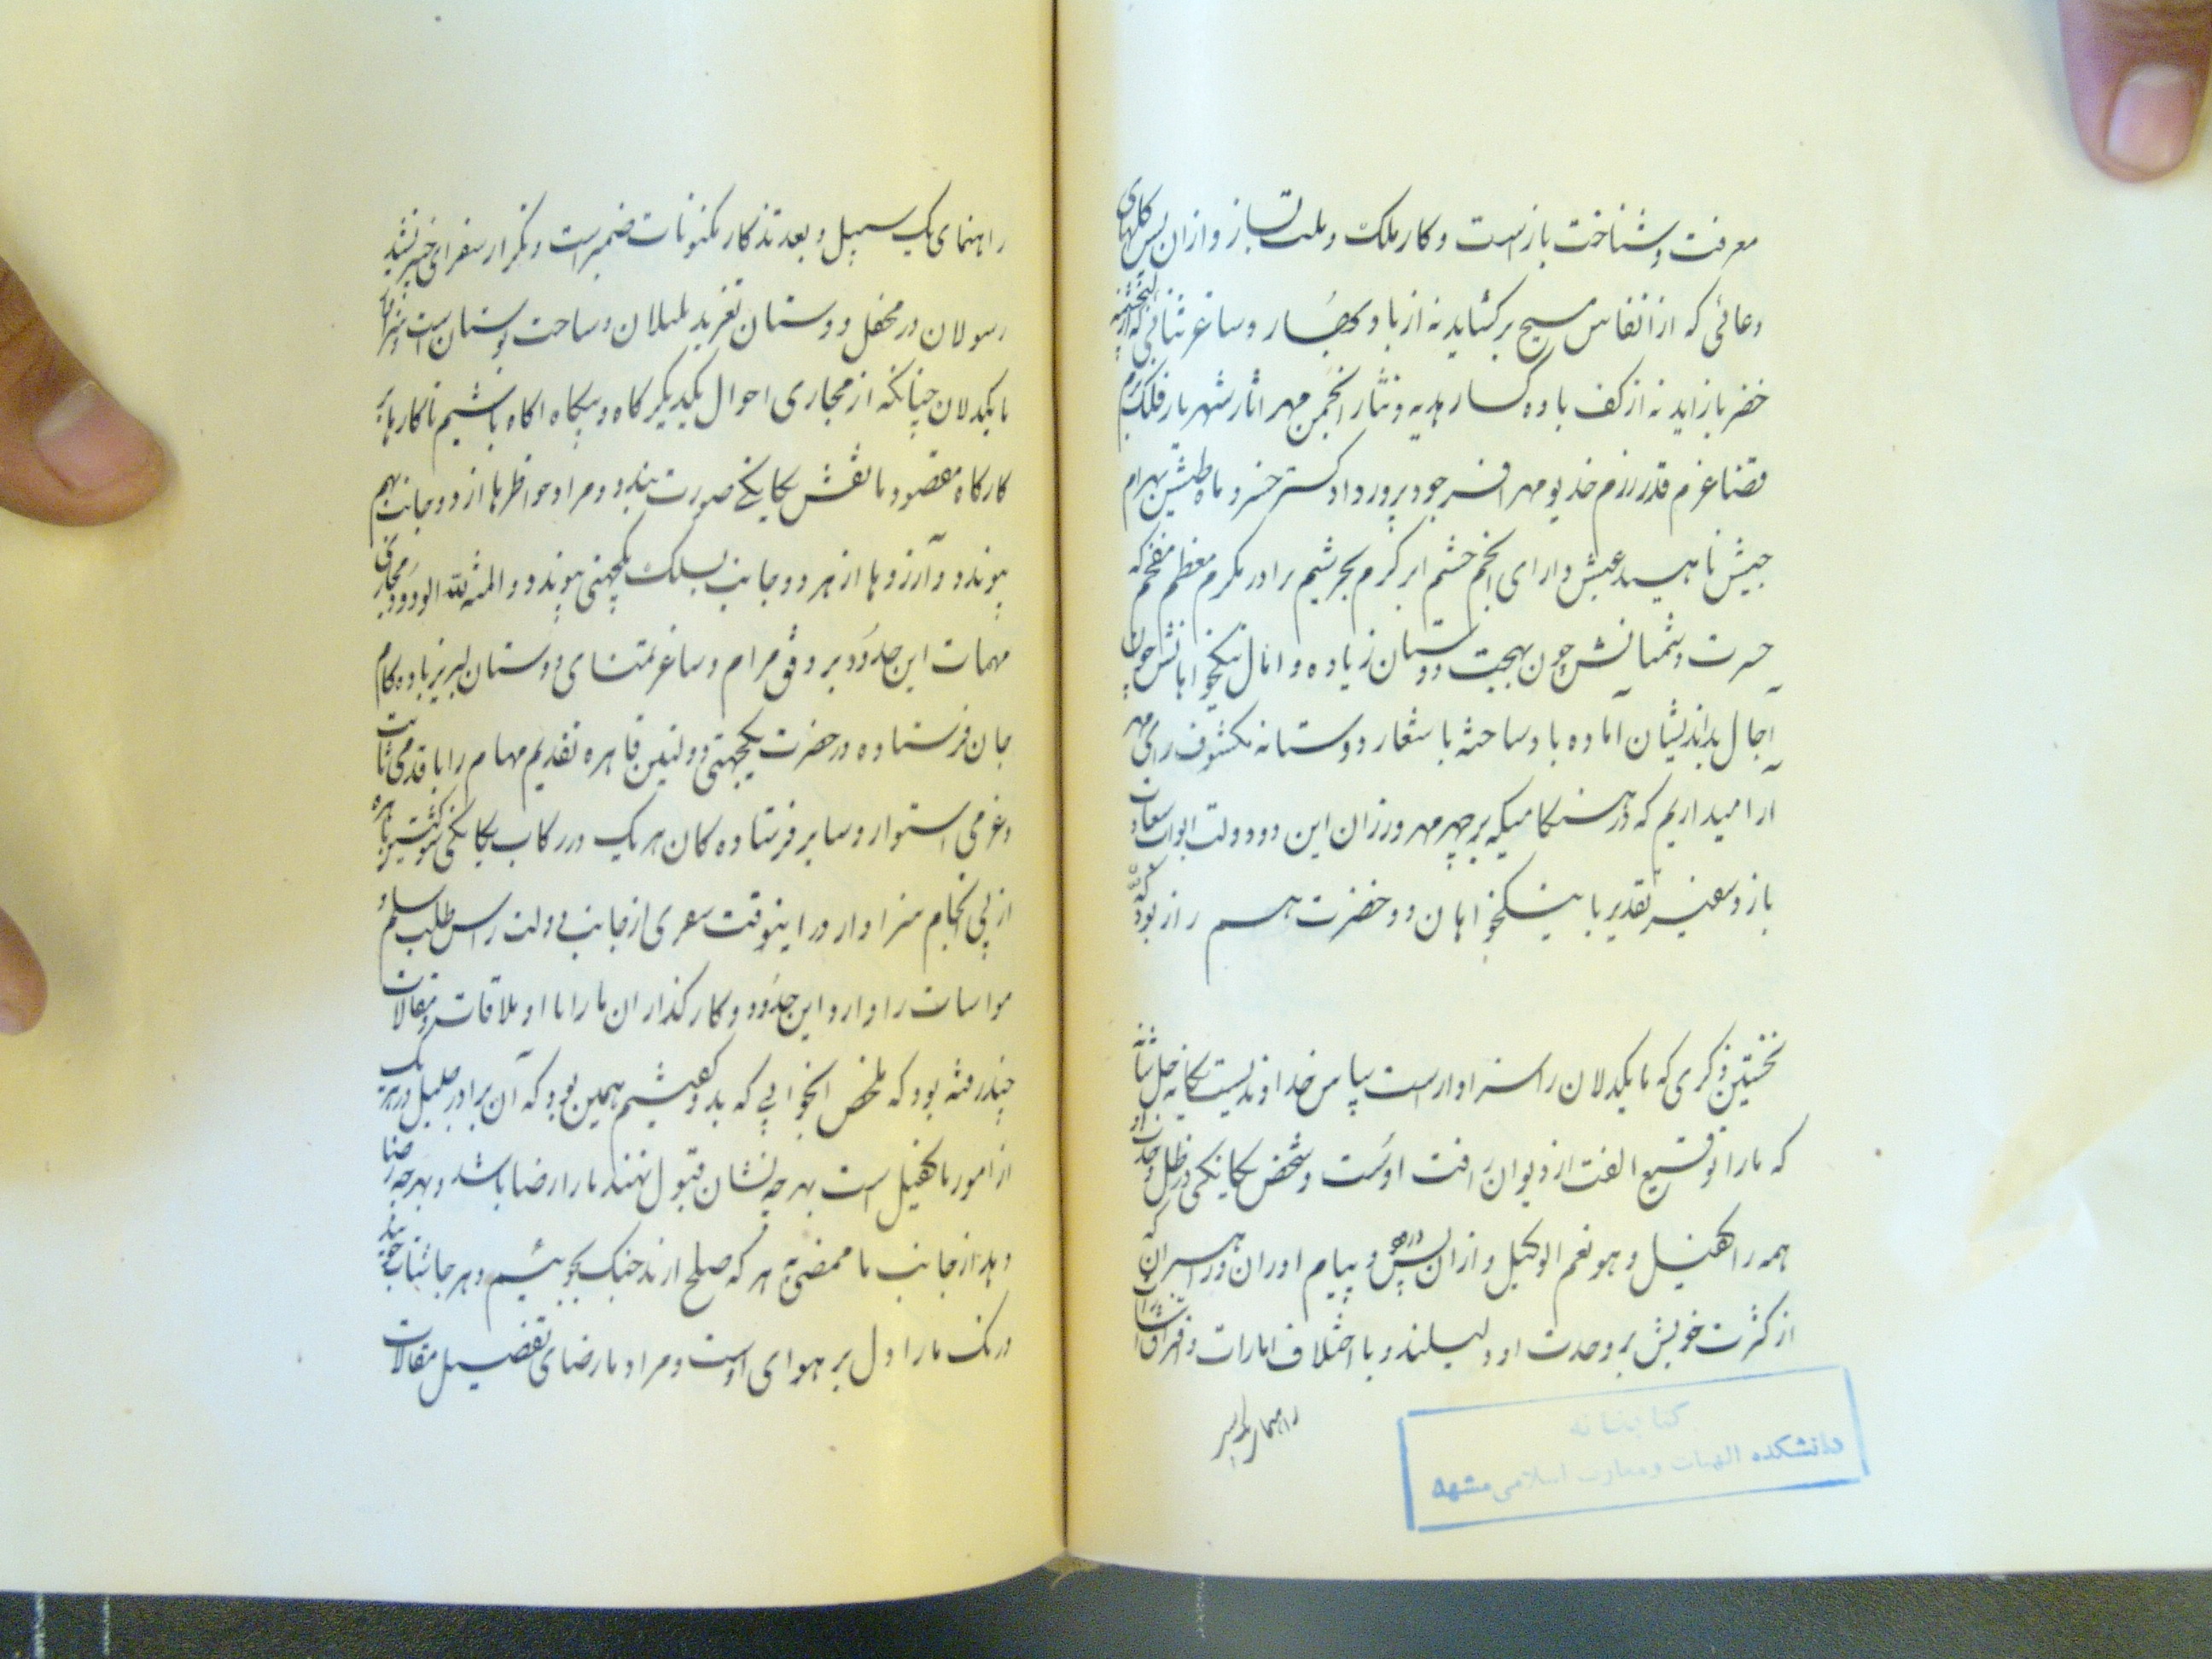 معرفت و شناخت باز است و کار ملک و ملت بساز و ازان پس کلهای
دعائی که از انفاس مسیح برکشاید نه از باد بهار و ساغر ثنائی که از چشمه
خضر باز اید نه از کف باده کسار هدیه و نثار انجمن مهر اثار شهریار فلک بزم
قضا عزم قدر رزم خدیو مهر افسر جود پرور دادکستر خسرو ماه طیش بهرام
جیش ناهید عیش دارای انجم حشم ابر کرم بحر شیم برادر مکرم معظم مفخم که
حسرت دشمنانش چون بهجت دوستان زیاده و امال نیکخواهانش چون
آجال بداندیشان آماده باد ساخته باشعار دوستانه مکشوف رای مهر
آرا میداریم که در هنکامیکه بر چهر مهرورزان این دو دولت ابواب سعادت
باز و سفیر تقدیر با نیکخواهان دو حضرت هم راز بود
نخستین ذکری که ما یکدلان را سزاوار است سپاس خداوندیست یکانه جل شانه
که ما را توقیع الفت از دیوان رافت اوست و شخص یکانکی در ظل وحدت او
همه را کفیل و هو نعم الوکیل و ازان پس درود و پیام اوران و رهبران که
از کثرت خویش بر وحدت او دلیلند و با اختلاف امارات و افتراق اشارات
راهنمای یک سبیل و بعد تذکار مکنونات ضمیر است و تکرار سفرای خبیر نشید
رسولان در محفل دوستان تغرید بلبلان و ساحت بوستان است و شرط
ما یکدلان چنانکه از مجاری احوال یکدیکر کاه و بیکاه اکاه باشیم تا کارها بر
کارکاه مقصود ما نقش یکانکی صورت بندد و مراد خواطرها از دو جانب بهم
پیوندد و آرزوها از هر دو جانب بسلک یکجهتی پیوندد و المنة لله الودود مجاری
مهمات این حدود بر وفق مرام و ساغر تمنای دوستان لبریز باده کام
جان فرستاده در حضرت یکجهتی دولتین قاهره تقدیم مهام را با قدمی ثابت
و عزمی استوار و سایر فرستاده کان هر یک در رکاب یکانکی
از پی انجام سزاوار در اینوقت سفری از جانب دولت راس طلب سلم و
مواسات را وارد این حدود و کارکذاران ما را با او ملاقات و مقالات
چند رفته بود که ملخص انجوابی که بدو کفتیم همین بود که آن برادر جلیل در هر یک
از امور ما کفیل است بهر چه نشان قبول نهند ما را رضا باشد و بهر چه رضا
دهد از جانب ما ممضی هر که صلح ارند جنک نجوئیم و هر جا شتاب جویند
درنک ما را دل بر هوای اوست و مراد ما رضای تفصیل مقالات
کتابخانه
دانشکده الهیات و معارف اسلامی مشهد